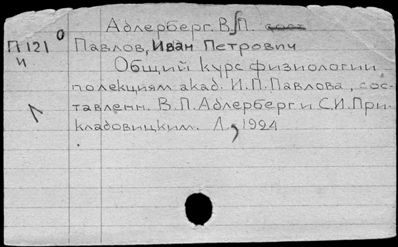 Адлерберг. В.П. сост
П121⁰ Павлов, Иван Петрович
и Общий курс физиологии
полекциям акад. И.П. Павлова, сос-
тавленн. В.П. Адлерберг и С.И. При-
кладовицким. Л, 1924